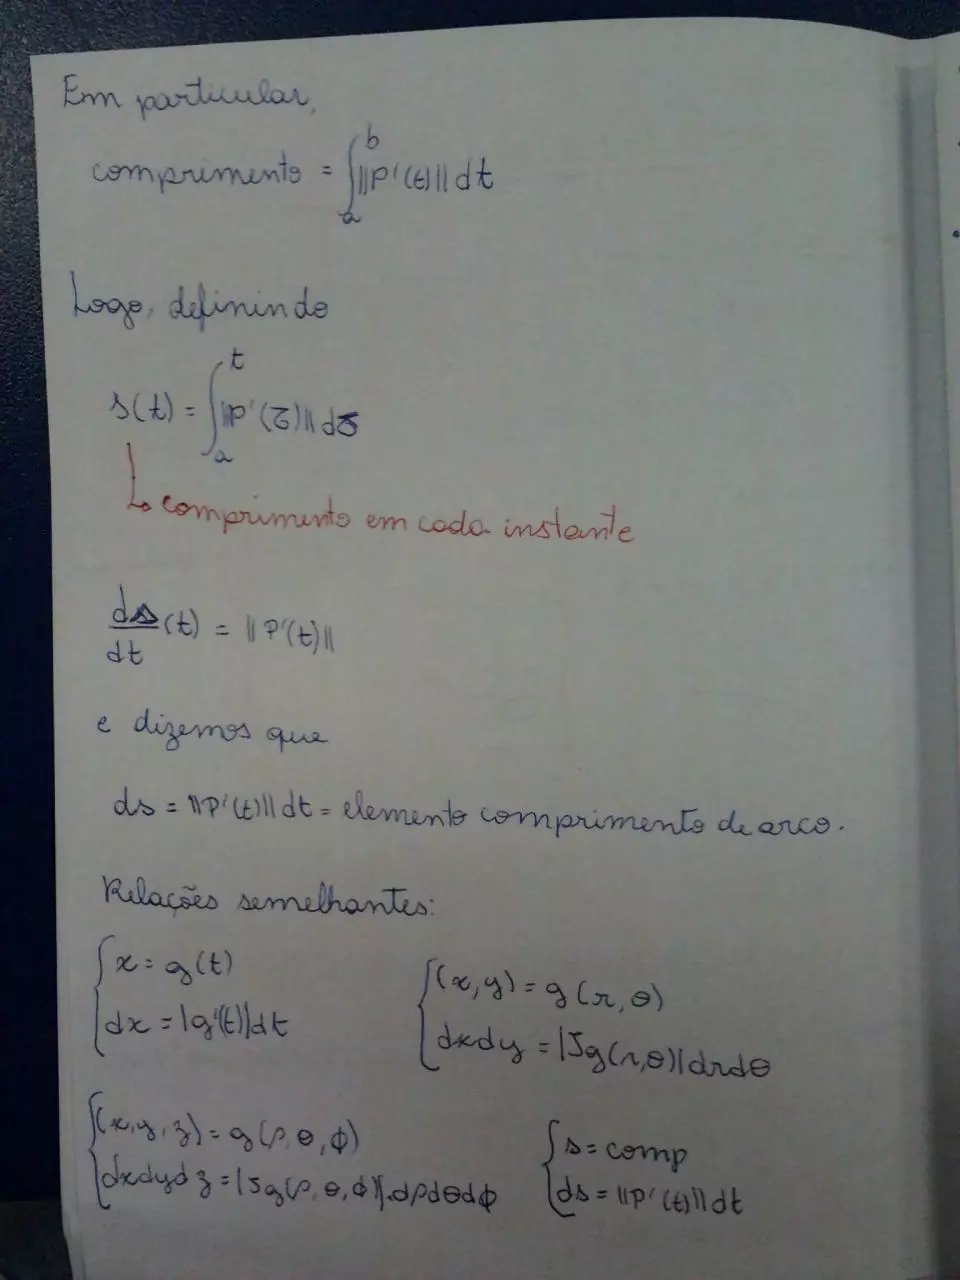 Em particular,
comprimento = ∫_a^b ||P'(t)|| dt
Logo, definindo
s(t) = ∫_a^t ||P'(τ)|| dτ
↳ comprimento em cada instante
ds/dt (t) = ||P'(t)||
e dizemos que
ds = ||P'(t)|| dt = elemento comprimento de arco.
Relações semelhantes:
{ x = g(t)
dx = |g'(t)| dt
{ (x,y) = g(r,θ)
dxdy = |Jg(r,θ)| drdθ
{ (x,y,z) = g(ρ,θ,ϕ)
dxdydz = |Jg(ρ,θ,ϕ)|.dρdθdϕ
{ s = comp
ds = ||P'(t)|| dt